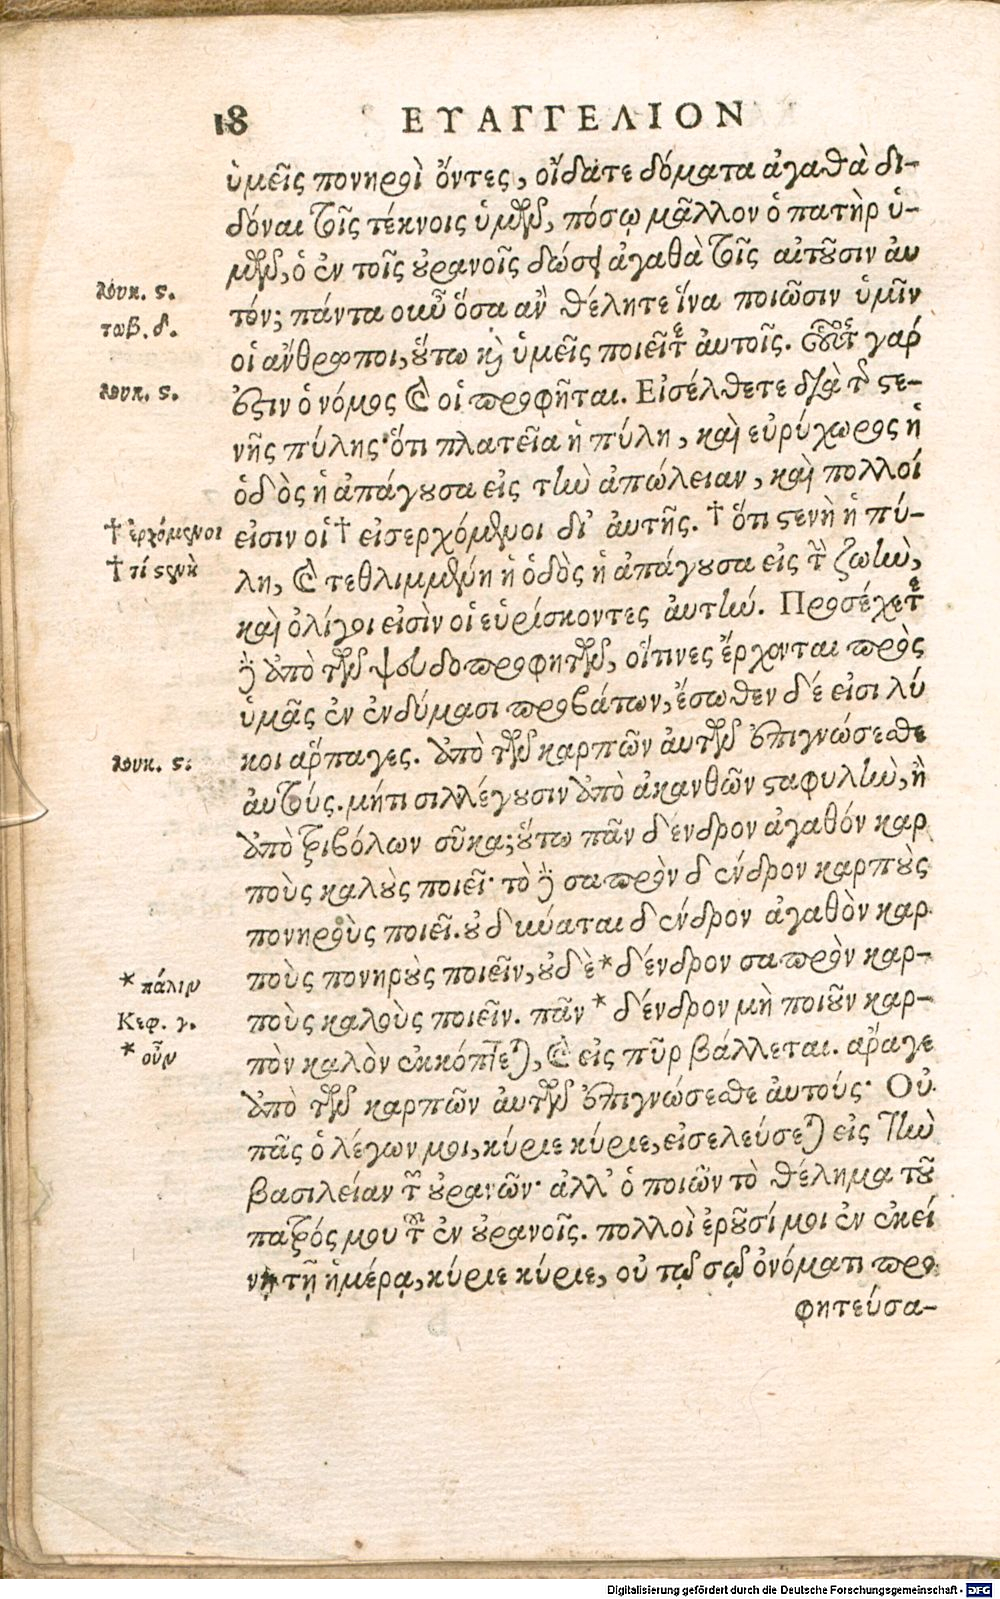 18 ΕΥΑΓΓΕΛΙΟΝ
ὑμεῖς πονηροὶ ὄντες, οἴδατε δόματα ἀγαθὰ δι-
δόναι τοῖς τέκνοις ὑμῶν, πόσῳ μᾶλλον ὁ πατὴρ ὑ-
μῶν, ὁ ἐν τοῖς οὐρανοῖς δώσει ἀγαθὰ τοῖς αἰτοῦσιν αὐ
τόν; πάντα οὖν ὅσα ἂν θέλητε ἵνα ποιῶσιν ὑμῖν
οἱ ἄνθρωποι, οὕτω καὶ ὑμεῖς ποιεῖτε αὐτοῖς. οὗτος γάρ
ἐστιν ὁ νόμος καὶ οἱ προφῆται. Εἰσέλθετε διὰ τῆς στε-
νῆς πύλης· ὅτι πλατεῖα ἡ πύλη, καὶ εὐρύχωρος ἡ
ὁδὸς ἡ ἀπάγουσα εἰς τὴν ἀπώλειαν, καὶ πολλοί
εἰσιν οἱ † εἰσερχόμενοι δι' αὐτῆς. † ὅτι στενὴ ἡ πύ-
λη, καὶ τεθλιμμένη ἡ ὁδὸς ἡ ἀπάγουσα εἰς τὴν ζωὴν,
καὶ ὀλίγοι εἰσὶν οἱ εὑρίσκοντες αὐτήν. Προσέχετε
δὲ ἀπὸ τῶν ψευδοπροφητῶν, οἵτινες ἔρχονται πρὸς
ὑμᾶς ἐν ἐνδύμασι προβάτων, ἔσωθεν δέ εἰσι λύ
κοι ἅρπαγες. ἀπὸ τῶν καρπῶν αὐτῶν ἐπιγνώσεσθε
αὐτούς. μήτι σιλλέγουσιν ἀπὸ ἀκανθῶν σταφυλὴν, ἢ
ἀπὸ τριβόλων σῦκα; οὕτω πᾶν δένδρον ἀγαθόν καρ
ποὺς καλοὺς ποιεῖ· τὸ δὲ σαπρὸν δένδρον καρποὺς
πονηροὺς ποιεῖ. οὐ δύναται δένδρον ἀγαθὸν καρ
ποὺς πονηροὺς ποιεῖν, οὐδὲ * δένδρον σαπρὸν καρ-
ποὺς καλοὺς ποιεῖν. πᾶν * δένδρον μὴ ποιοῦν καρ-
πὸν καλὸν ἐκκόπτεται, καὶ εἰς πῦρ βάλλεται. ἄραγε
ἀπὸ τῶν καρπῶν αὐτῶν ἐπιγνώσεσθε αὐτούς· Οὐ
πᾶς ὁ λέγων μοι, κύριε κύριε, εἰσελεύσεται εἰς τὴν
βασιλείαν τῶν οὐρανῶν· ἀλλ' ὁ ποιῶν τὸ θέλημα τοῦ
πατρός μου τοῦ ἐν οὐρανοῖς. πολλοὶ ἐροῦσί μοι ἐν ἐκεί
νῃ τῇ ἡμέρᾳ, κύριε κύριε, οὐ τῷ σῷ ὀνόματι προ
φητεύσα-
λουκ. ϛ.
τωβ. δ.
λουκ. ϛ.
† ἐρχόμενοι
† τί στενὴ
λουκ. ϛ.
* πάλιν
Κεφ. γ.
* οὖν
Digitalisierung gefördert durch die Deutsche Forschungsgemeinschaft - DFG